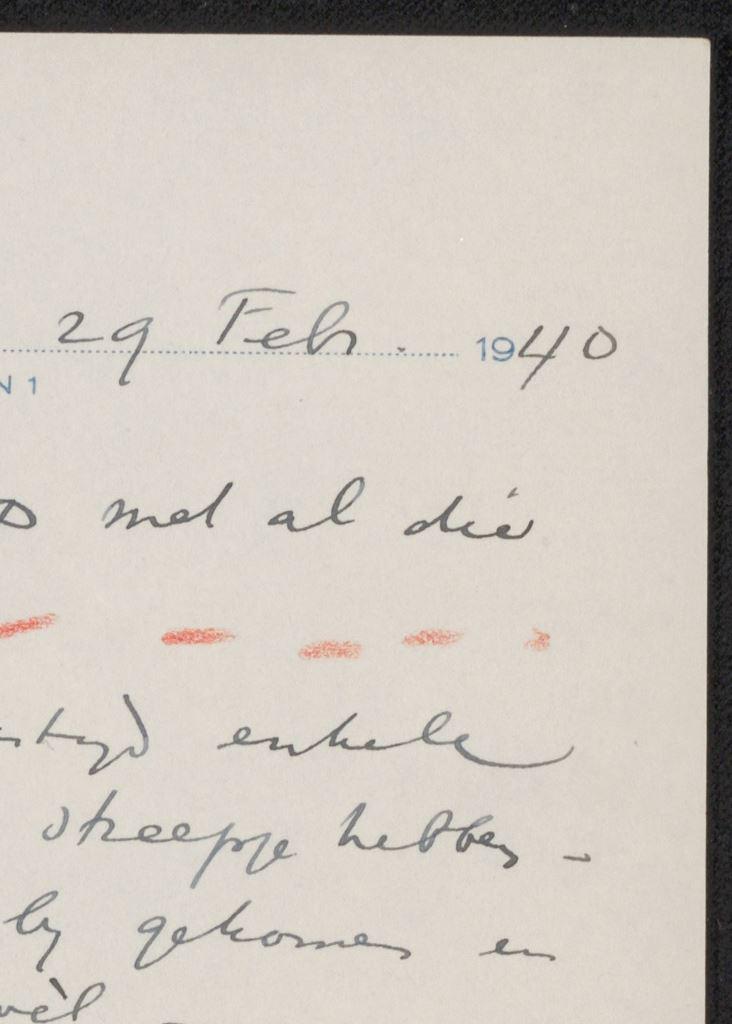 29 Febr. 1940
N 1
met al die
enkele
streepje hebben -
by gekomen en
wèl